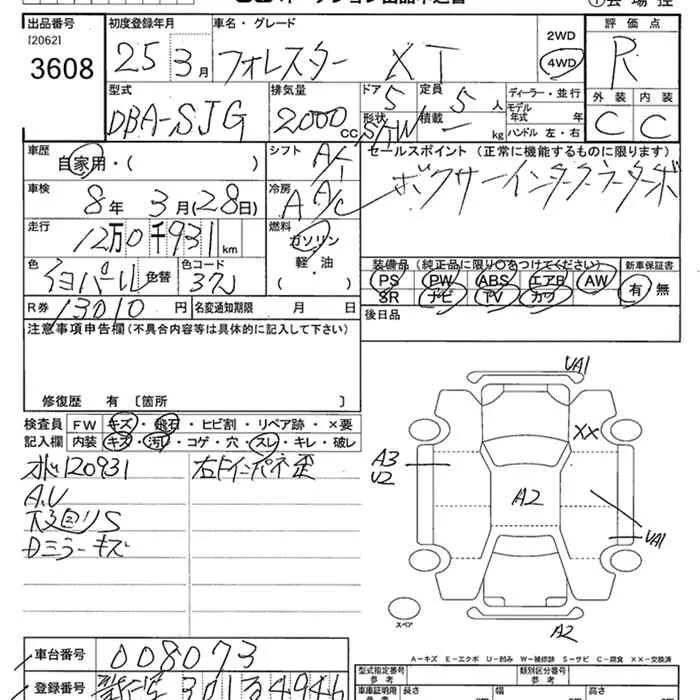 出品番号 初度登録年月 車名・グレード 評価点
I20621
3608 25 3月 フォレスター XT 2WD 4WD R
型式 排気量 ドア 定員 ディーラー・並行 外装 内装
DBA-SJG 2000cc 5 5人 モデル年式 年 C C
形状 S/W 積載 ー kg ハンドル 左・右
車歴 シフト セールスポイント (正常に機能するものに限ります)
自家用・( ) AT ボクサーインタークーラーターボ
車検 冷房
8年 3月(28日) A A/C
走行 燃料
12万0千931km ガソリン
軽・油
( )
色 色替 色コード 装備品(純正品に限り○をつけてください) 新車保証書
37J PS PW ABS エアB AW 有 無
SR ナビ TV カワ
R券 13010円 名変通知期限 月 日 後日品
注意事項申告欄(不具合内容等は具体的に記入して下さい)
修復歴 有〔箇所 〕
検査員 FW キズ・飛石・ヒビ割・リペア跡・×要
記入欄 内装 キズ・汚れ・コゲ・穴・スレ・キレ・破レ
120931
A.U
下廻りS
Dミラーキズ
右Fインパネ歪
UA1
XX
A3
U2
A2
UA1
スペア
A2
A-キズ E-エクボ U-凹み W-補修跡 S-サビ C-腐食 XX-交換済
車台番号 008073
登録番号 301 4946
型式指定番号 参考 類別区分番号 参考
車庫証明用 長さ 幅 高さ